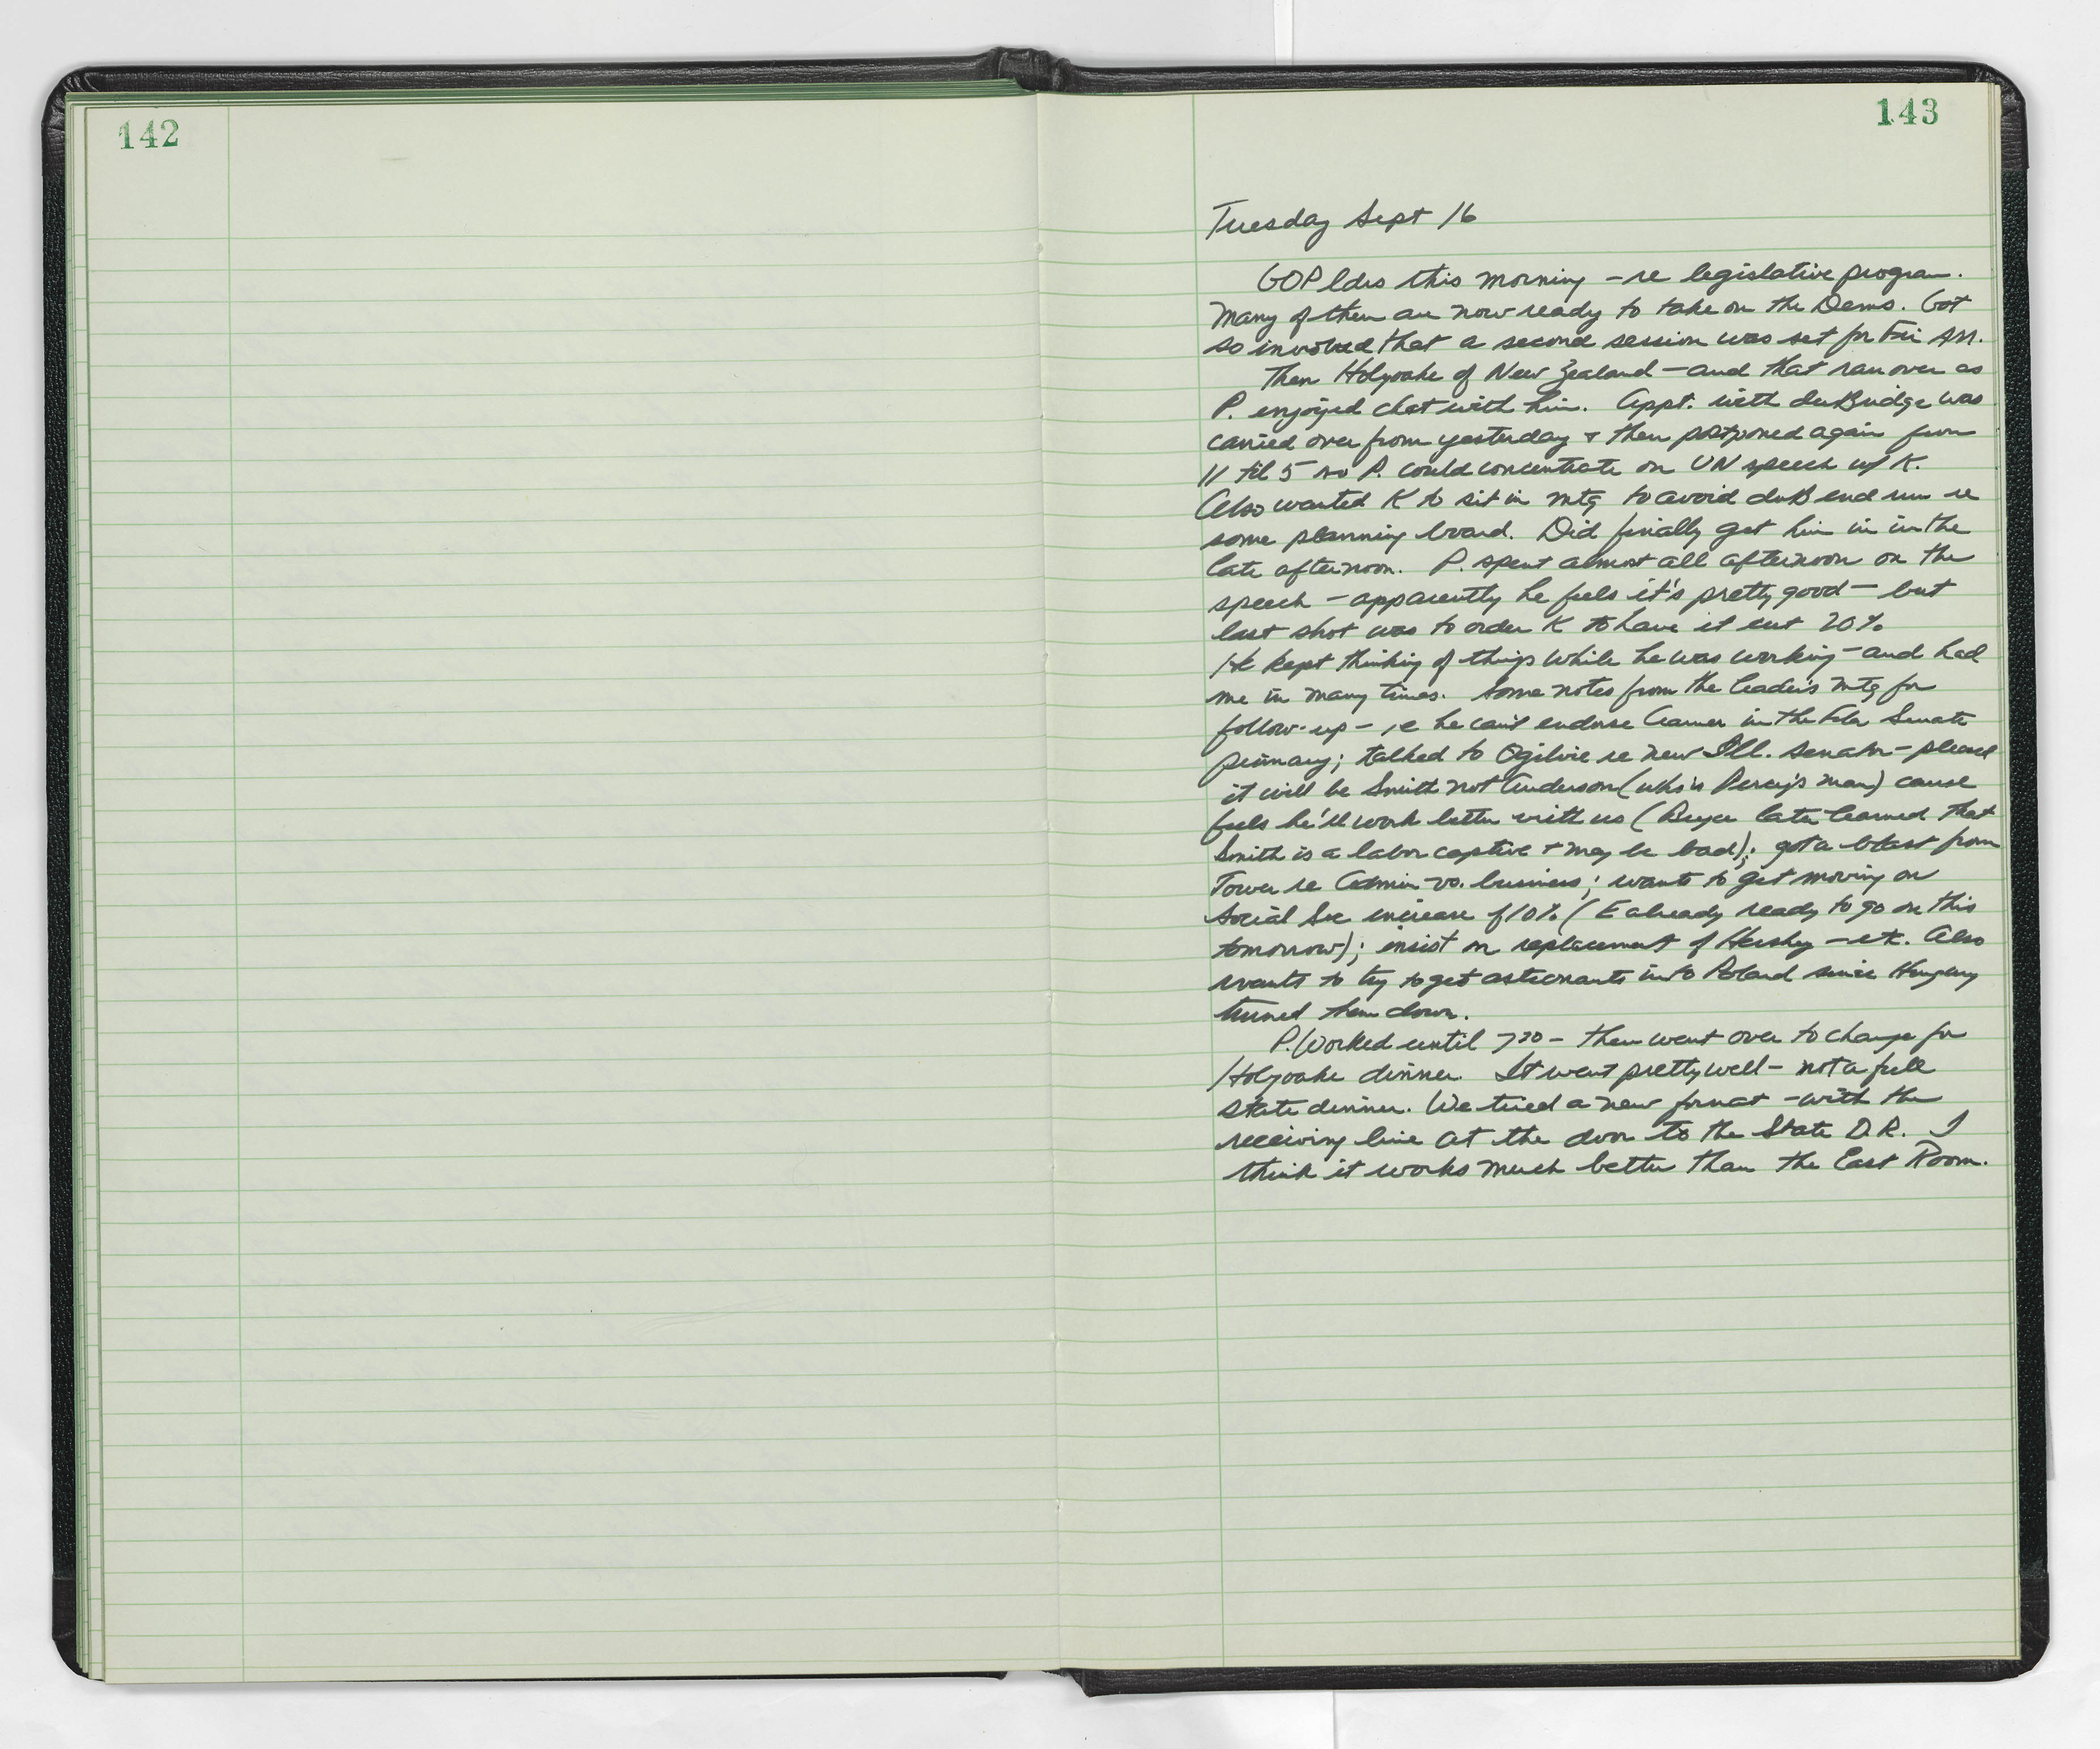 142
143
Tuesday Sept 16
GOP ldrs this morning - re legislative program.
Many of them are now ready to take on the Dems. Got
so involved that a second session was set for Fri AM.
Then Holyoake of New Zealand - and that ran over as
P. enjoyed chat with him. Appt. with duBridge was
carried over from yesterday + then postponed again from
11 til 5 so P. could concentrate on UN speech w/ K.
Also wanted K to sit in mtg to avoid duB end run re
some planning board. Did finally get him in in the
late afternoon. P. spent almost all afternoon on the
speech - apparently he feels it's pretty good - but
last shot was to order K to have it cut 20%
He kept thinking of things while he was working - and had
me in many times. Some notes from the leaders mtg for
follow-up - ie he can't endorse Cramer in the Fla Senate
primary; talked to Ogilvie re new Ill. senator - pleased
it will be Smith not Anderson (who is Percy's man) cause
feels he'll work better with us (Bryce later learned that
Smith is a labor captive + may be bad); got a blast from
Tower re Admin vs. business; wants to get moving on
Social Sec increase of 10% (E already ready to go on this
tomorrow); insist on replacement of Hershey - etc. Also
wants to try to get astronauts into Poland since Hungary
turned them down.
P. worked until 7:30 - then went over to change for
Holyoake dinner. It went pretty well - not a full
state dinner. We tried a new format - with the
receiving line at the door to the State D.R. I
think it works much better than the East Room.